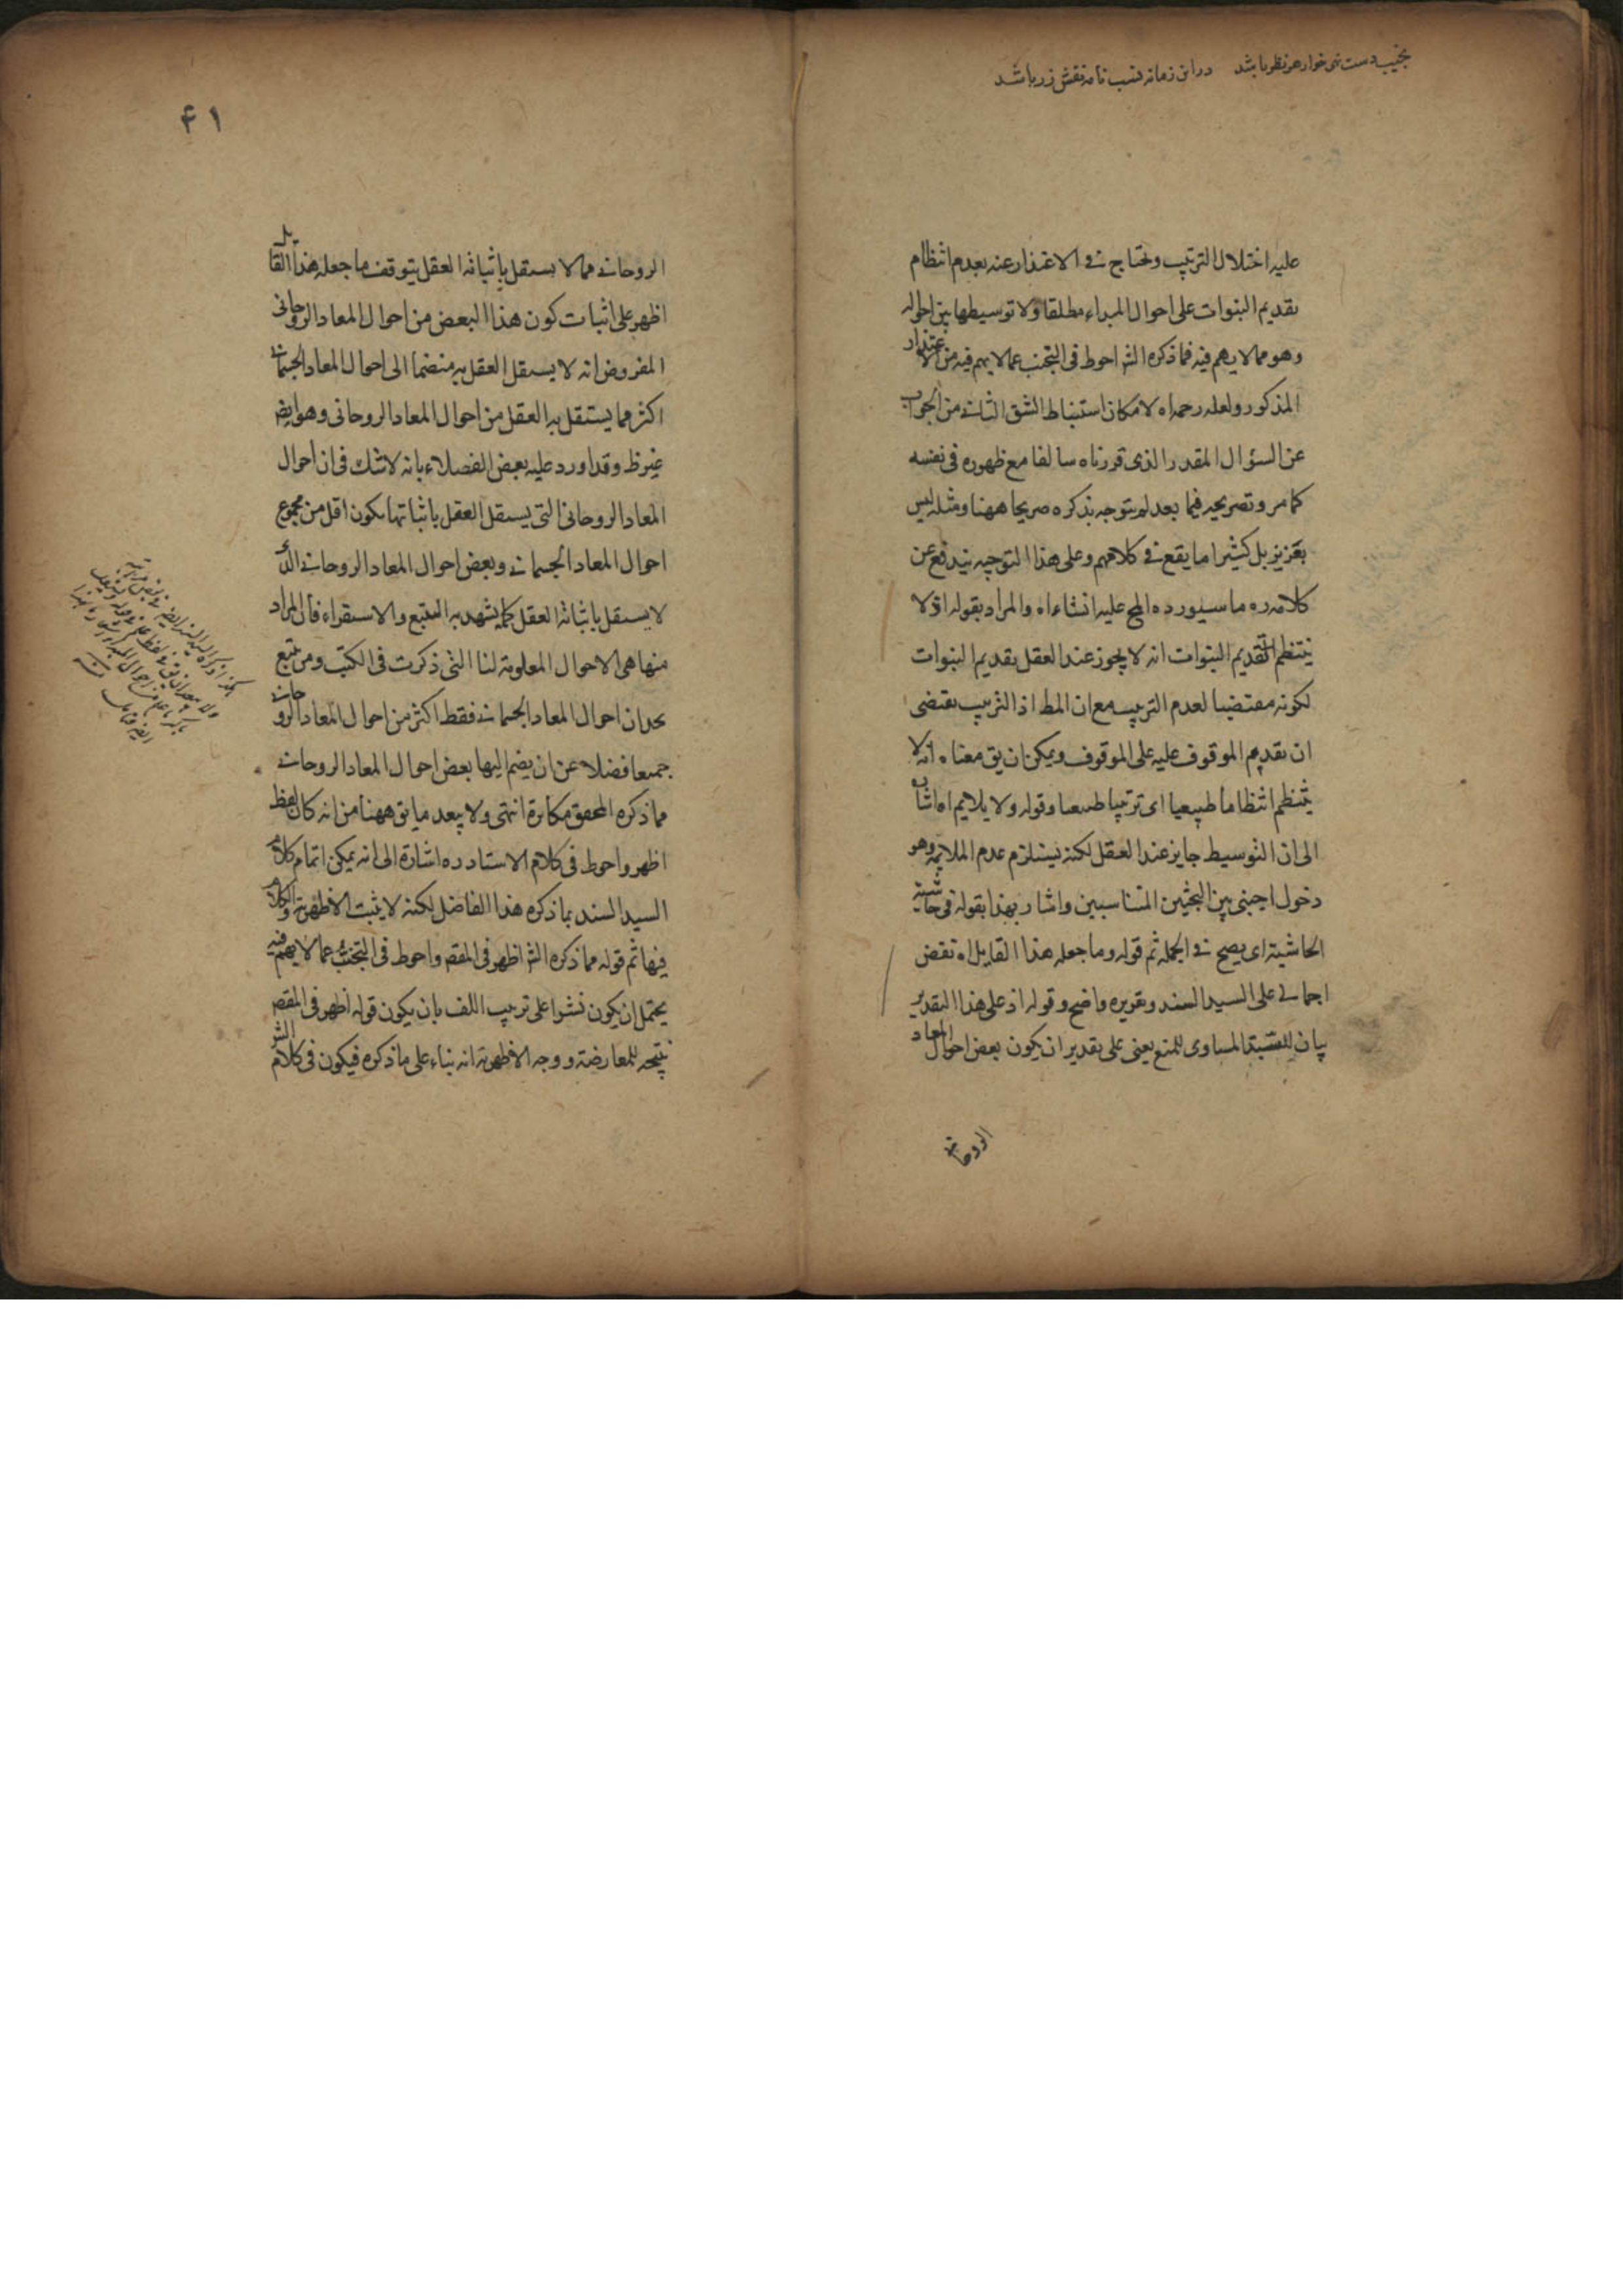 دراین زمانه نسب نامه نقش زر باشد
علیه اختلال الترتیب ویحتاج فی الاعتذار عنه بعدم انتظام
تقدیم النبوات علی احوال المبداء مطلقا ولا توسیطها بین احواله
وهو مما لا یهم فیه فما ذکره الش احوط فی التجنب عما لا یهم فیه من الاعتذار
المذکور ولعله رحمه اه لامکان استنباط الشق الثانی من الجواب
عن السؤال المقدر الذی قررناه سالفا مع ظهوره فی نفسه
کما مر وتصریحه فیما بعد لم یتوجه بذکره صریحا ههنا ومثله لیس
بعزیز بل کثیرا ما یقع فی کلامهم وعلی هذا التوجیه یندفع عن
کلامه ره ما سیورده المح علیه انشاء اه والمراد بقوله اولا
ینتظم التقدیم النبوات انه لا یجوز عند العقل تقدیم النبوات
لکونه مقتضیا لعدم الترتیب مع ان المط اذ الترتیب یقتضی
ان تقدیم الموقوف علیه علی الموقوف ویمکن ان یق معناه انه لا
ینتظم انتظاما طبیعیا ای ترتیبا طبیعیا وقوله ولا یلایم اه اشارة
الی ان التوسیط جایز عند العقل لکنه یستلزم عدم الملایمة وهو
دخول اجنبی بین البحثین المتناسبین واشار بهذا بقوله فی حاشیة
الحاشیة ای یصح فی الجملة ثم قوله وما جعله هذا القایل اه نقض
اجمالی علی السید السند وتقریره واضح وقوله اذ علی هذا التقدیر
بیان للسند المساوی للمنع یعنی علی تقدیر ان یکون بعض احوال المعاد
الروحانی
۴۱
الروحانی مما لا یستقل باثباته العقل یتوقف ما جعله هذا القایل
اظهر علی اثبات کون هذا البعض من احوال المعاد الروحانی
المفروض انه لا یستقل العقل به منضما الی احوال المعاد الجسمانی
اکثر مما یستقل به العقل من احوال المعاد الروحانی وهو ایض
غیر ظ وقد اورد علیه بعض الفضلاء بانه لا شک فی ان احوال
المعاد الروحانی التی یستقل العقل باثباتها یکون اقل من مجموع
احوال المعاد الجسمانی وبعض احوال المعاد الروحانی الذی
لا یستقل باثباته العقل کما یشهد به التتبع والاستقراء فان المراد
منها هی الاحوال المعلومة لنا التی ذکرت فی الکتب ومن تتبع
یجد ان احوال المعاد الجسمانی فقط اکثر من احوال المعاد الروحانی
جمیعا فضلا عن ان یضم الیها بعض احوال المعاد الروحانی
مما ذکره المحقق مکابرة انتهی ولا یبعد ما یق ههنا من انه کان لفظ
اظهر واحوط فی کلام الاستاد ره اشارة الی انه یمکن اتمام کلام
السید السند بما ذکره هذا الفاضل لکنه لا یثبت الاظهریة والکلام
فیها ثم قوله مما ذکره الش اظهر فی المقص واحوط فی التجنب عما لا یهم فیه
یحتمل ان یکون نشرا علی ترتیب اللف بان یکون قوله اظهر فی المقص
نتیجه للمعارضة ووجه الاظهریة انه بناء علی ما ذکره فیکون فی کلام الش